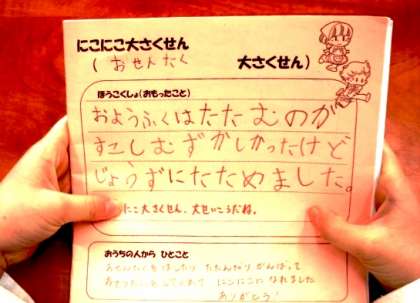 にこにこ大さくせん
( おせんたく 大さくせん)
ほうこくしょ(おもったこと)
おようふくはたたむのが
すこしむずかしかったけど
じょうずにたためました。
にこ大さくせん、大せいこうだね。
おうちの人から ひとこと
おせんたくをほしたり たたんだり がんばって
にこにこに なれました
ありがとう!